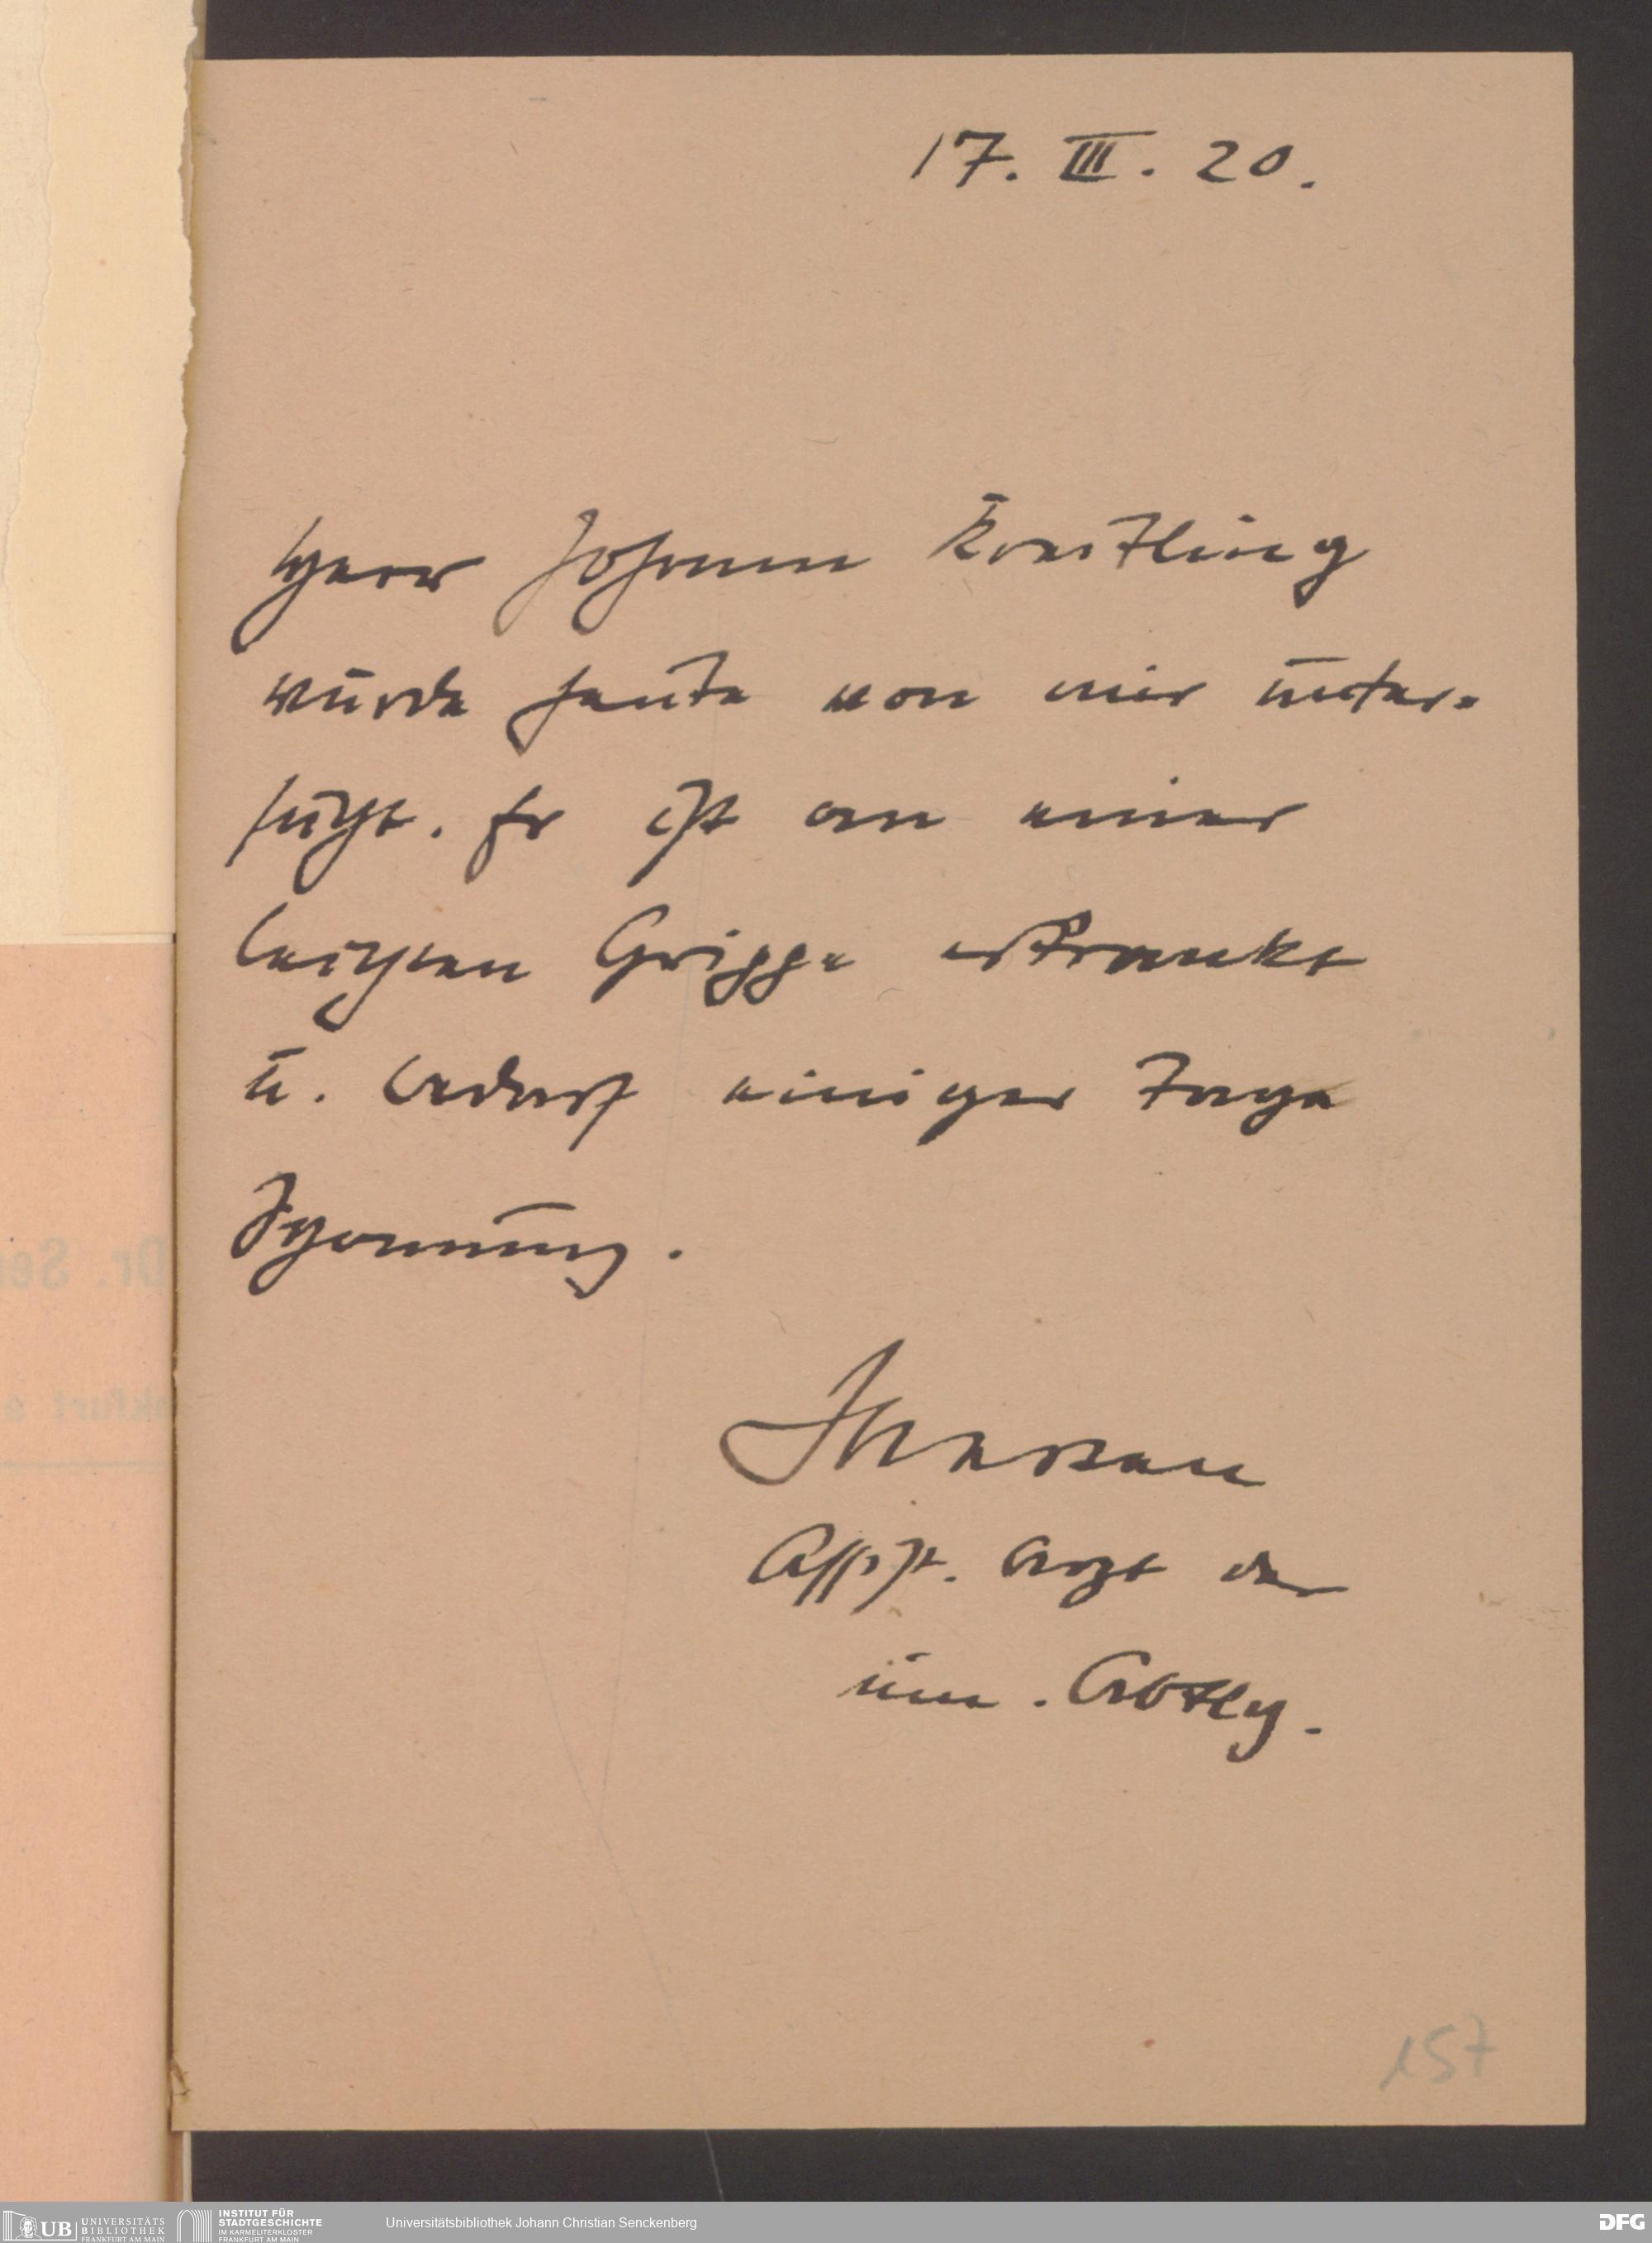 17. III. 20.
Herr Johann
wurde heute von mir unter-
sucht. Er ist an einer
leichten Grippe erkrankt
u. bedarf einiger Tage
Schonung.
Assist. Arzt der
inn. Abtlg.
157
Dr. Se
nkfurt a
UB UNIVERSITÄTS BIBLIOTHEK FRANKFURT AM MAIN
INSTITUT FÜR STADTGESCHICHTE IM KARMELITERKLOSTER FRANKFURT AM MAIN
Universitätsbibliothek Johann Christian Senckenberg
DFG